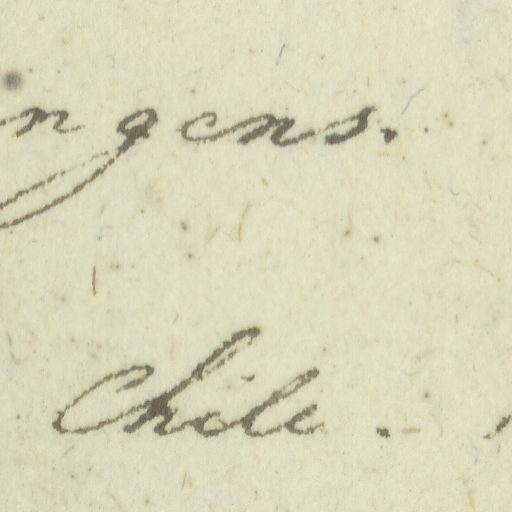 ngens.
Chile.